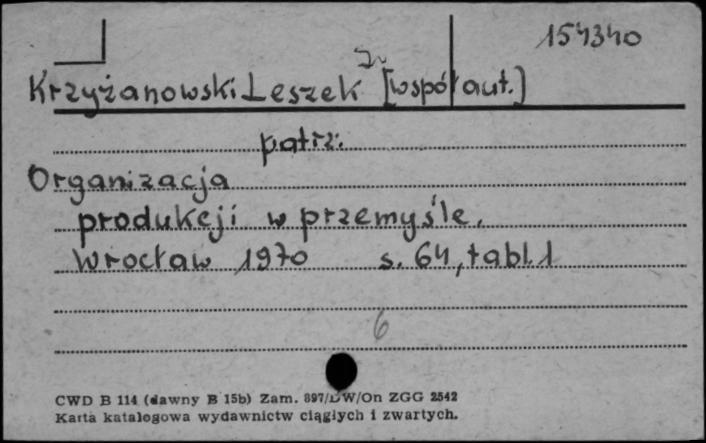 154340
Krzyżanowski Leszek [współaut.]
patrz:
Organizacja
produkcji w przemyśle.
Wrocław 1970 s. 64, tabl. 1
6
CWD B 114 (dawny B 15b) Zam. 897/DW/On ZGG 2542
Karta katalogowa wydawnictw ciągłych i zwartych.